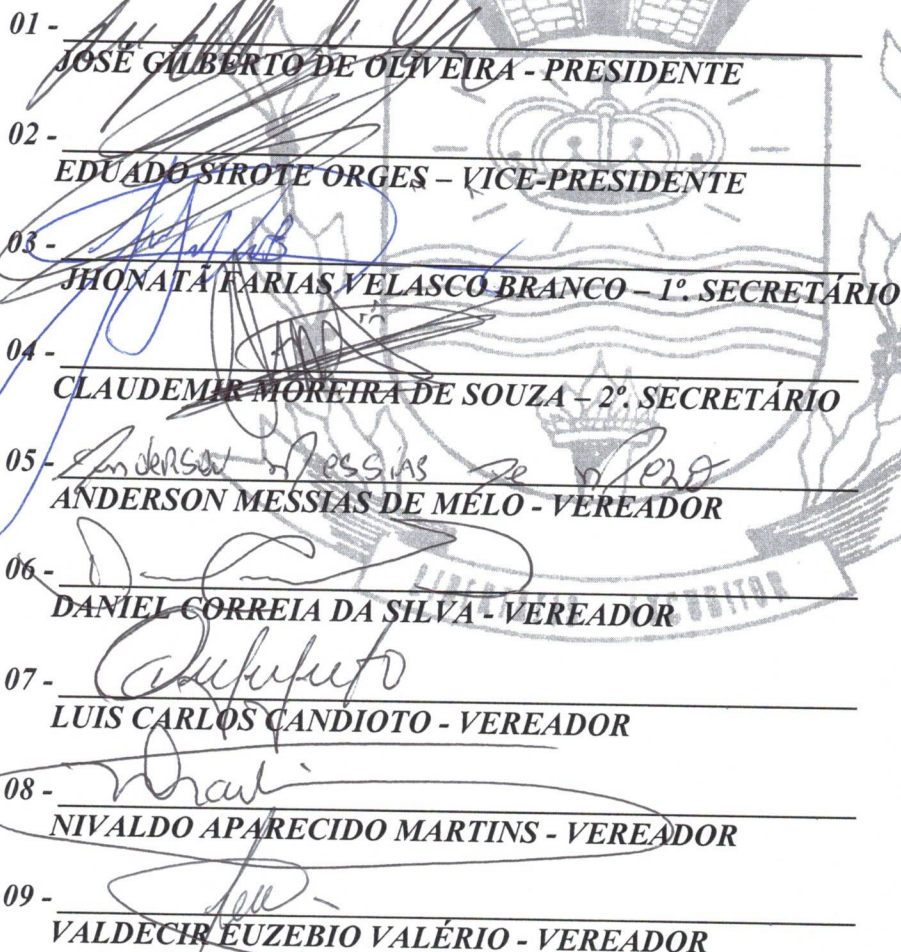 01 -
JOSÉ GILBERTO DE OLIVEIRA - PRESIDENTE
02 -
EDUADO SIROTE ORGES – VICE-PRESIDENTE
03 -
JHONATÃ FARIAS VELASCO BRANCO – 1º. SECRETÁRIO
04 -
CLAUDEMIR MOREIRA DE SOUZA – 2º. SECRETÁRIO
05 - Anderson Messias de Melo
ANDERSON MESSIAS DE MELO - VEREADOR
06 -
DANIEL CORREIA DA SILVA - VEREADOR
07 -
LUIS CARLOS CANDIOTO - VEREADOR
08 -
NIVALDO APARECIDO MARTINS - VEREADOR
09 -
VALDECIR EUZEBIO VALÉRIO - VEREADOR